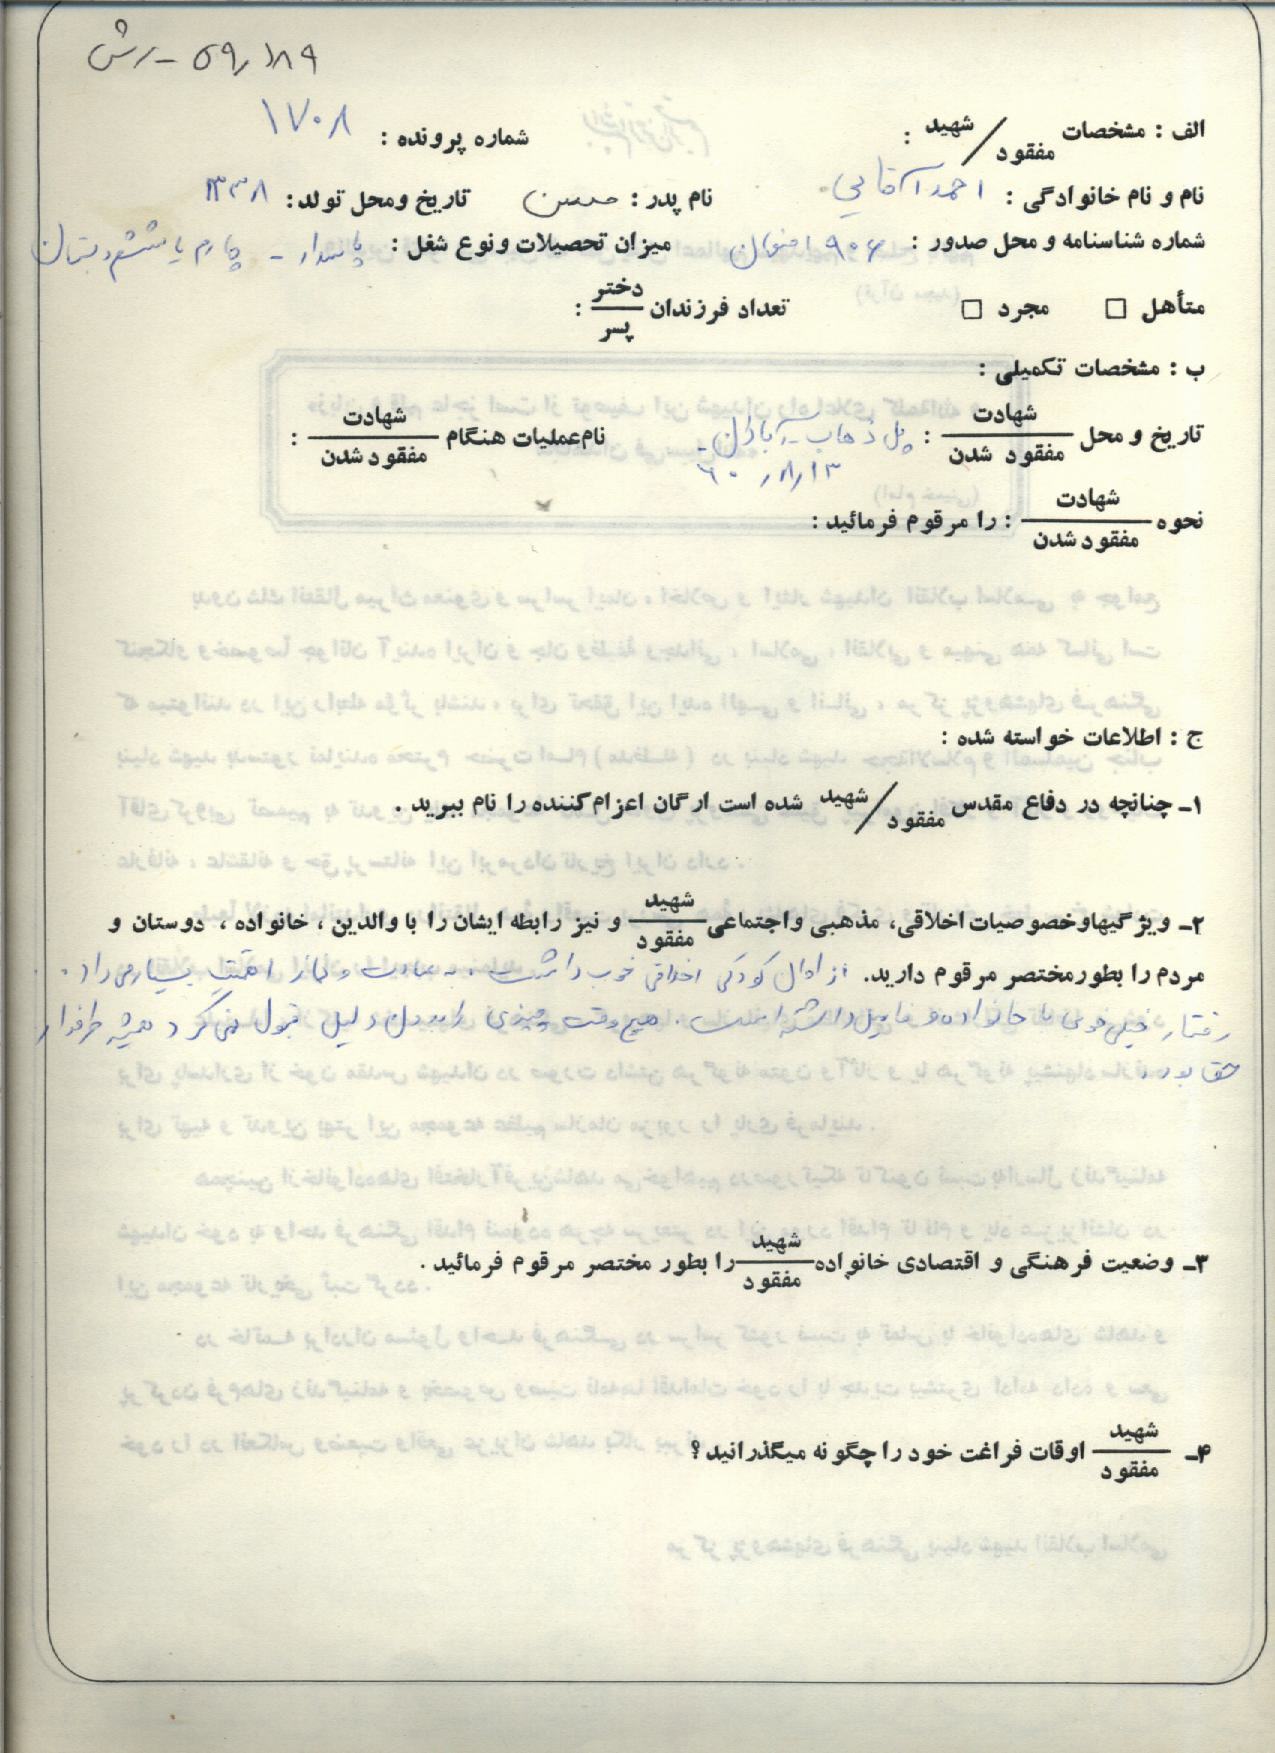 ۵۹٫۱۸۹ - رش
الف : مشخصات شهید / مفقود : شماره پرونده : ۱۷۰۸
نام و نام خانوادگی : احمد آقایی نام پدر : حسن تاریخ ومحل تولد : ۱۳۳۸
شماره شناسنامه و محل صدور : میزان تحصیلات ونوع شغل : پاسدار -
متأهل □ مجرد □ تعداد فرزندان دختر / پسر :
ب : مشخصات تکمیلی :
تاریخ و محل شهادت / مفقود شدن : پل ذهاب - نام عملیات هنگام شهادت / مفقود شدن :
۱۳٫۸٫۶۰
نحوه شهادت / مفقود شدن : را مرقوم فرمائید :
ج : اطلاعات خواسته شده :
۱ـ چنانچه در دفاع مقدس شهید / مفقود شده است ارگان اعزام کننده را نام ببرید .
۲ـ ویژگیهاوخصوصیات اخلاقی، مذهبی واجتماعی شهید / مفقود و نیز رابطه ایشان را با والدین ، خانواده ، دوستان و
مردم را بطورمختصر مرقوم دارید. از اوائل کودکی اخلاقی خوب داشت . به عبادت و نماز اهمیت بسیار می داد .
رفتار خیلی خوبی با خانواده و فامیل داشته است . هیچ وقت چیزی را بدون دلیل قبول نمی کرد و همیشه طرفدار
حق بود .
۳ـ وضعیت فرهنگی و اقتصادی خانواده شهید / مفقود را بطور مختصر مرقوم فرمائید .
۴ـ شهید / مفقود اوقات فراغت خود را چگونه میگذرانید؟